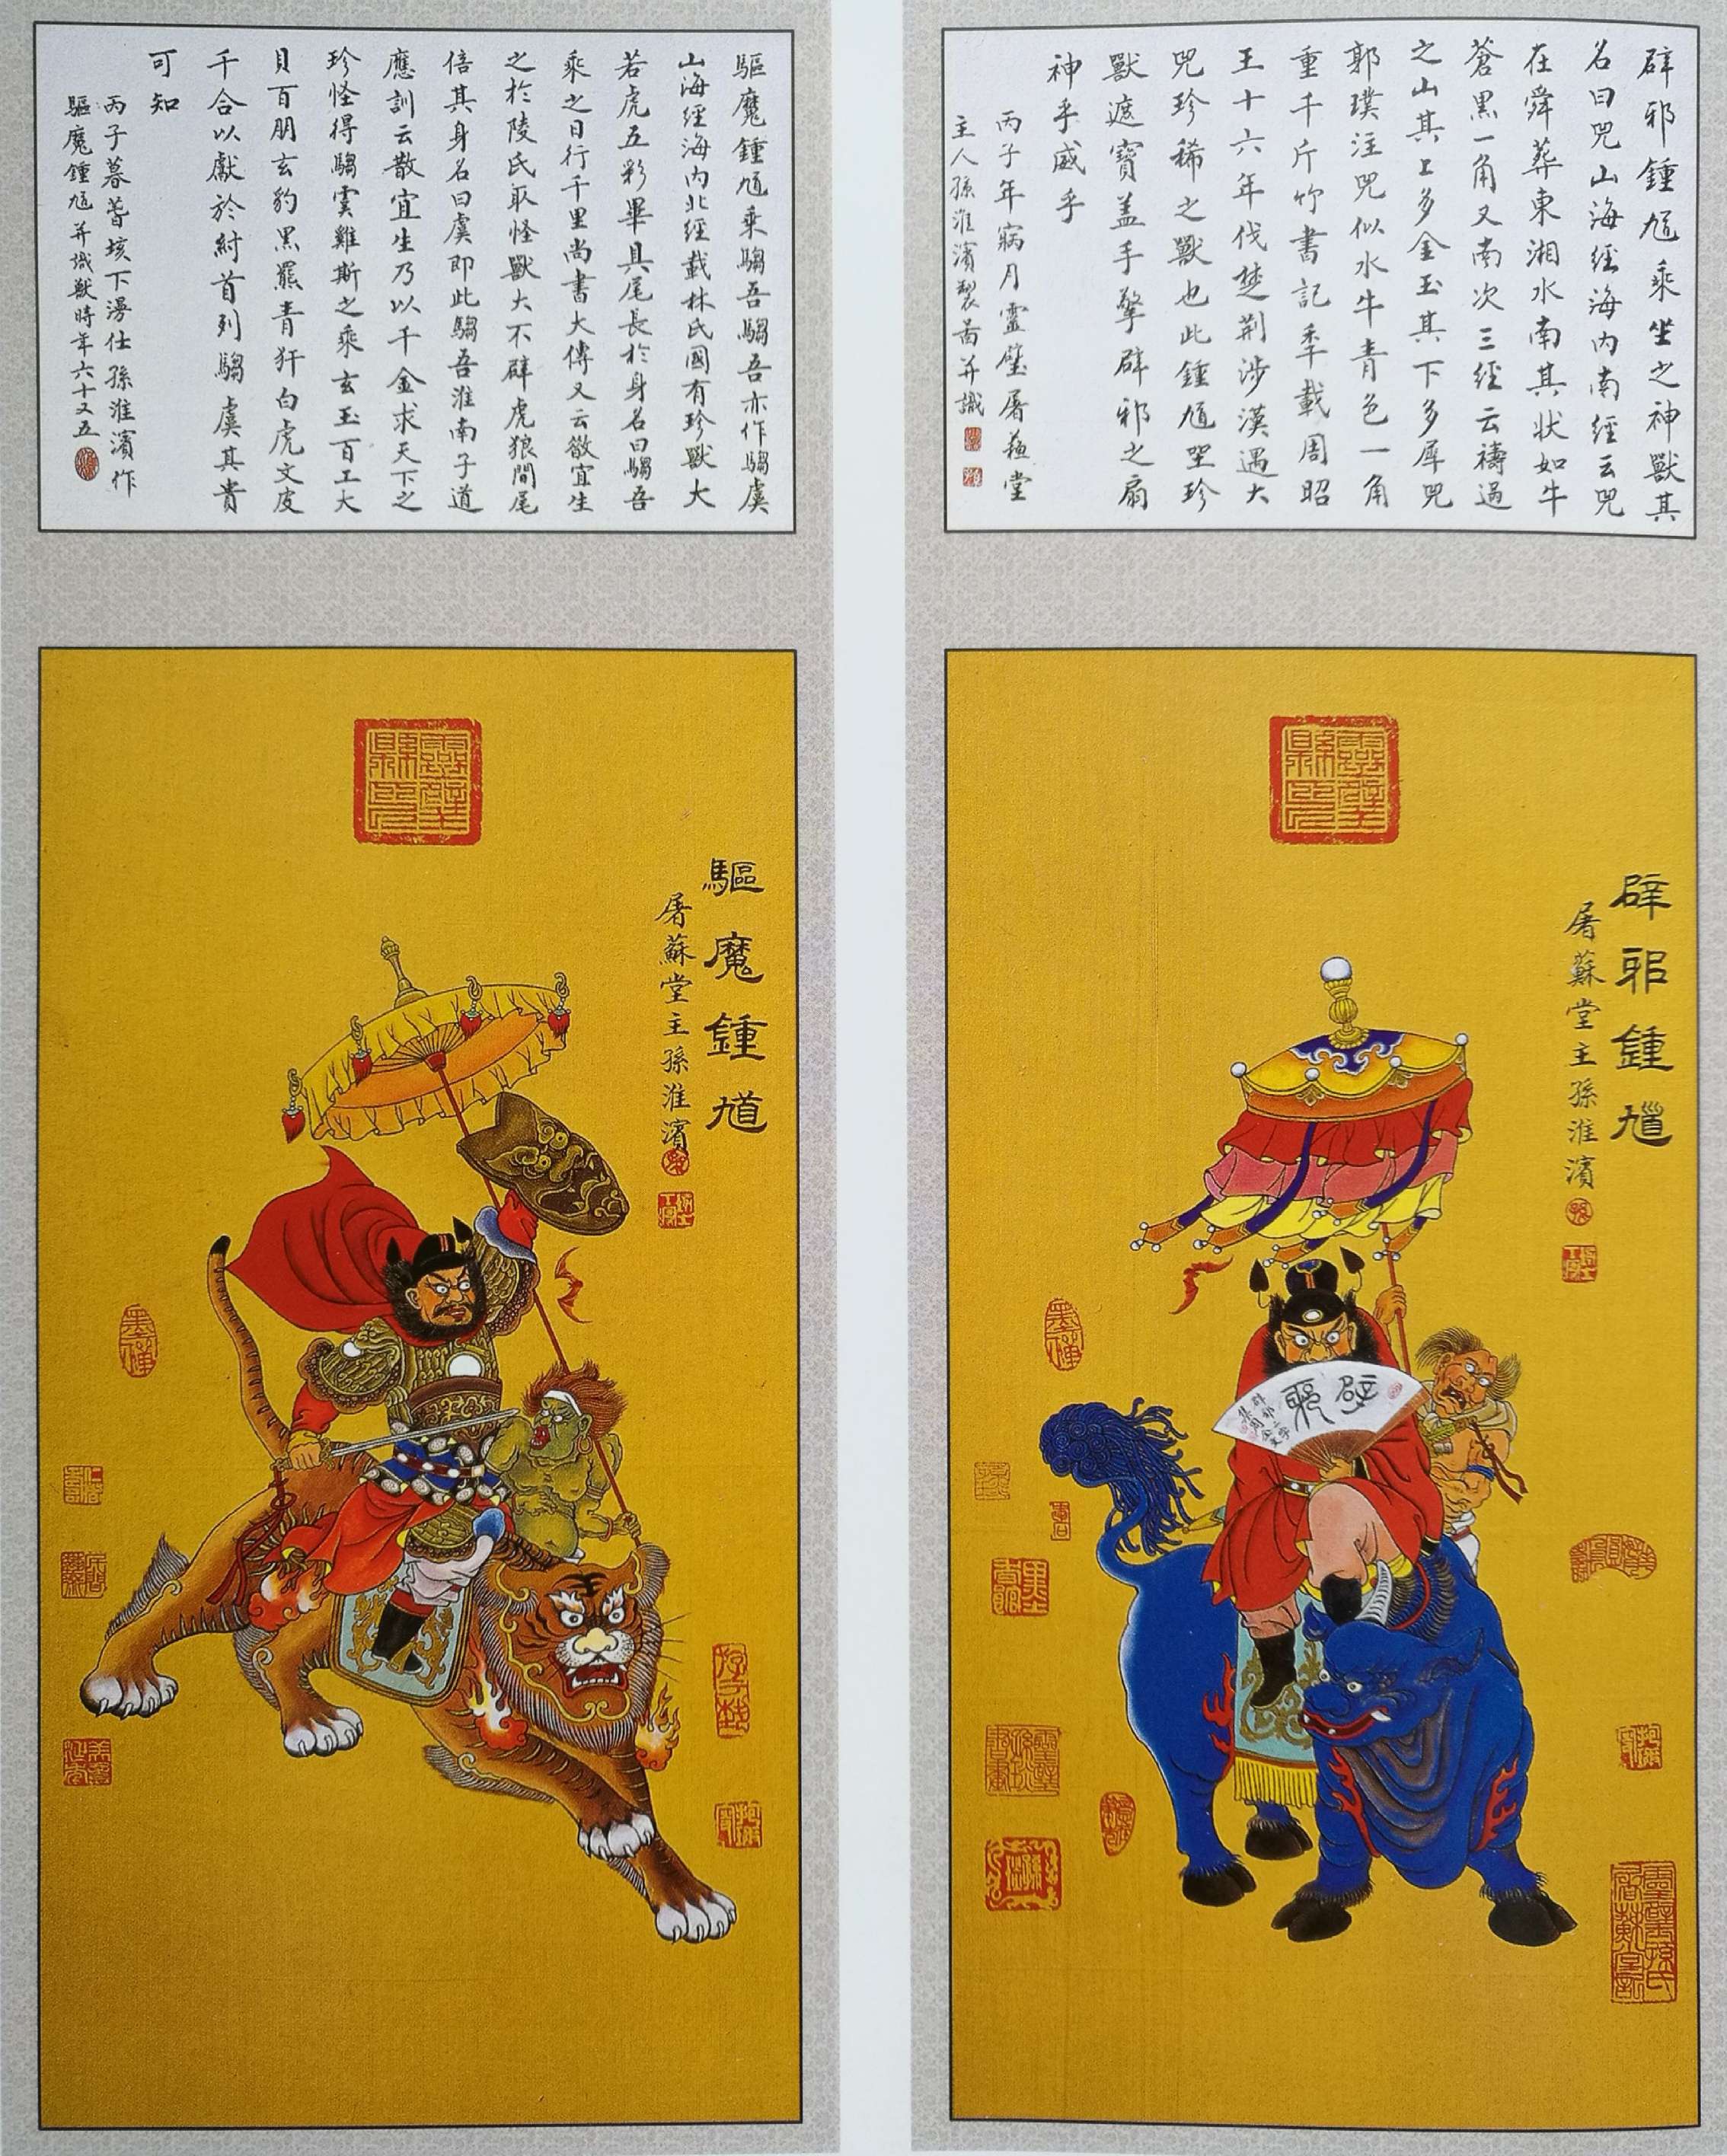 辟邪鍾馗乘坐之神獸其
名曰兕山海經海内南經云兕
在舜葬東湘水南其状如牛
蒼黑一角又南次三經云禱過
之山其上多金玉其下多犀兕
郭璞注兕似水牛青色一角
重千斤竹書記年載周昭
王十六年伐楚荆涉漢遇大
兕珍稀之獸也此鍾馗坐珍
獸遮寶盖手擎辟邪之扇
神乎威乎
丙子年寎月靈璧屠蘇堂
主人孫淮濱製畵并識
辟邪鍾馗
屠蘇堂主孫淮濱
辟邪
驅魔鍾馗乘騶吾騶吾亦作騶虞
山海經海内北經載林氏國有珍獸大
若虎五彩畢具尾長於身名曰騶吾
乘之日行千里尚書大傳又云散宜生
之於陵氏取怪獸大不辟虎狼間尾
倍其身名曰虞即此騶吾淮南子道
應訓云散宜生乃以千金求天下之
珍怪得騶虞雞斯之乘玄玉百工大
貝百朋玄豹黑羆青犴白虎文皮
千合以獻於紂首列騶虞其貴
可知
丙子暮春垓下漫仕孫淮濱作
驅魔鍾馗并識獸時年六十又五
驅魔鍾馗
屠蘇堂主孫淮濱